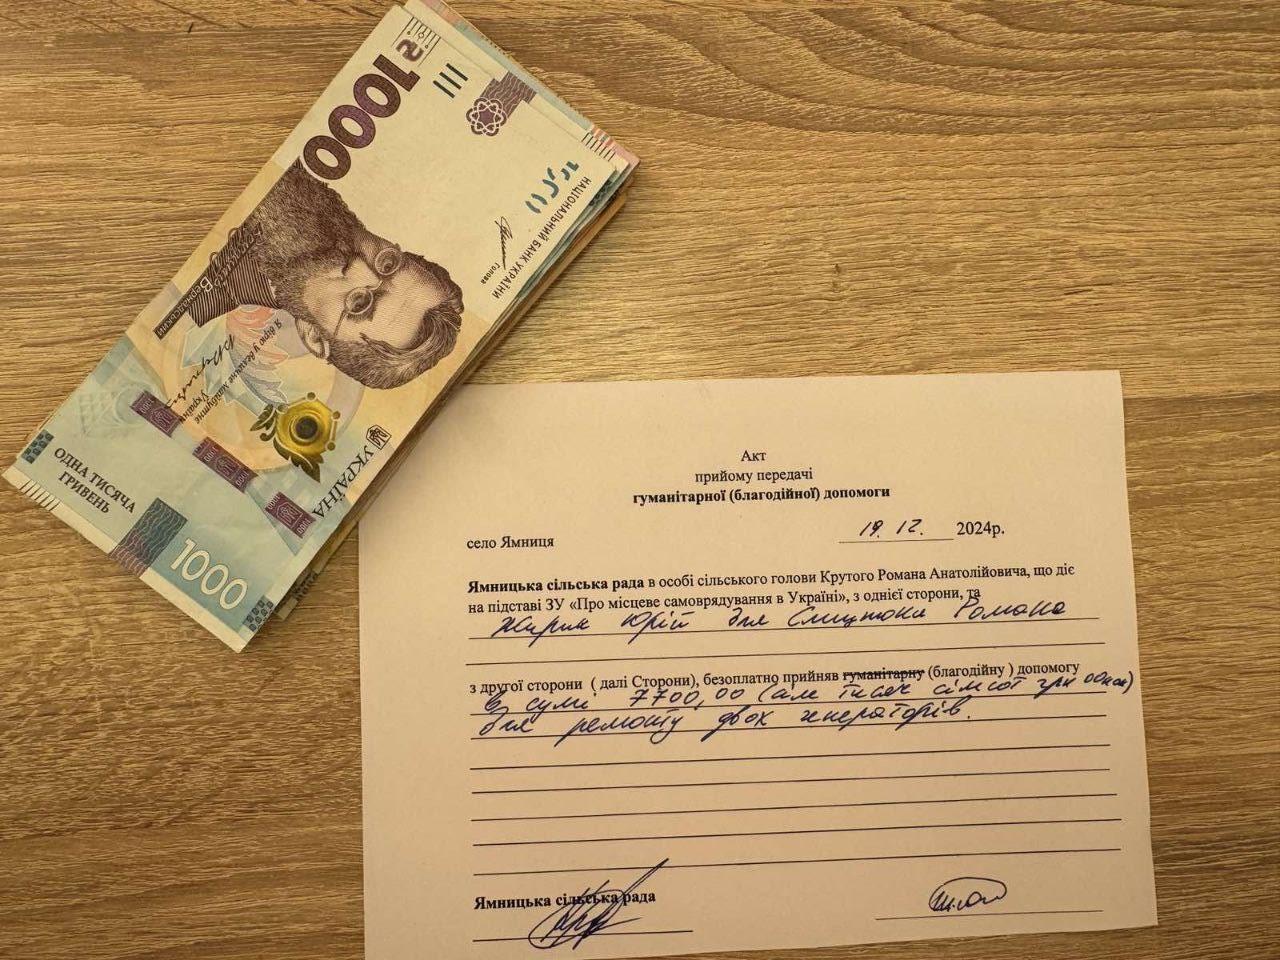 1000 ₴
НАЦІОНАЛЬНИЙ БАНК УКРАЇНИ
Голова
Володимир Вернадський
Я вірю у величне майбутнє України
УКРАЇНА
ОДНА ТИСЯЧА
ГРИВЕНЬ
1000
Акт
прийому передачі
гуманітарної (благодійної) допомоги
село Ямниця
19. 12. 2024р.
Ямницька сільська рада в особі сільського голови Крутого Романа Анатолійовича, що діє
на підставі ЗУ «Про місцеве самоврядування в Україні», з однієї сторони, та
Юрій для Романа
з другої сторони ( далі Сторони), безоплатно прийняв гуманітарну (благодійну ) допомогу
в сумі 7700,00 (сім тисяч сімсот грн 00коп)
для ремонту двох генераторів.
Ямницька сільська рада